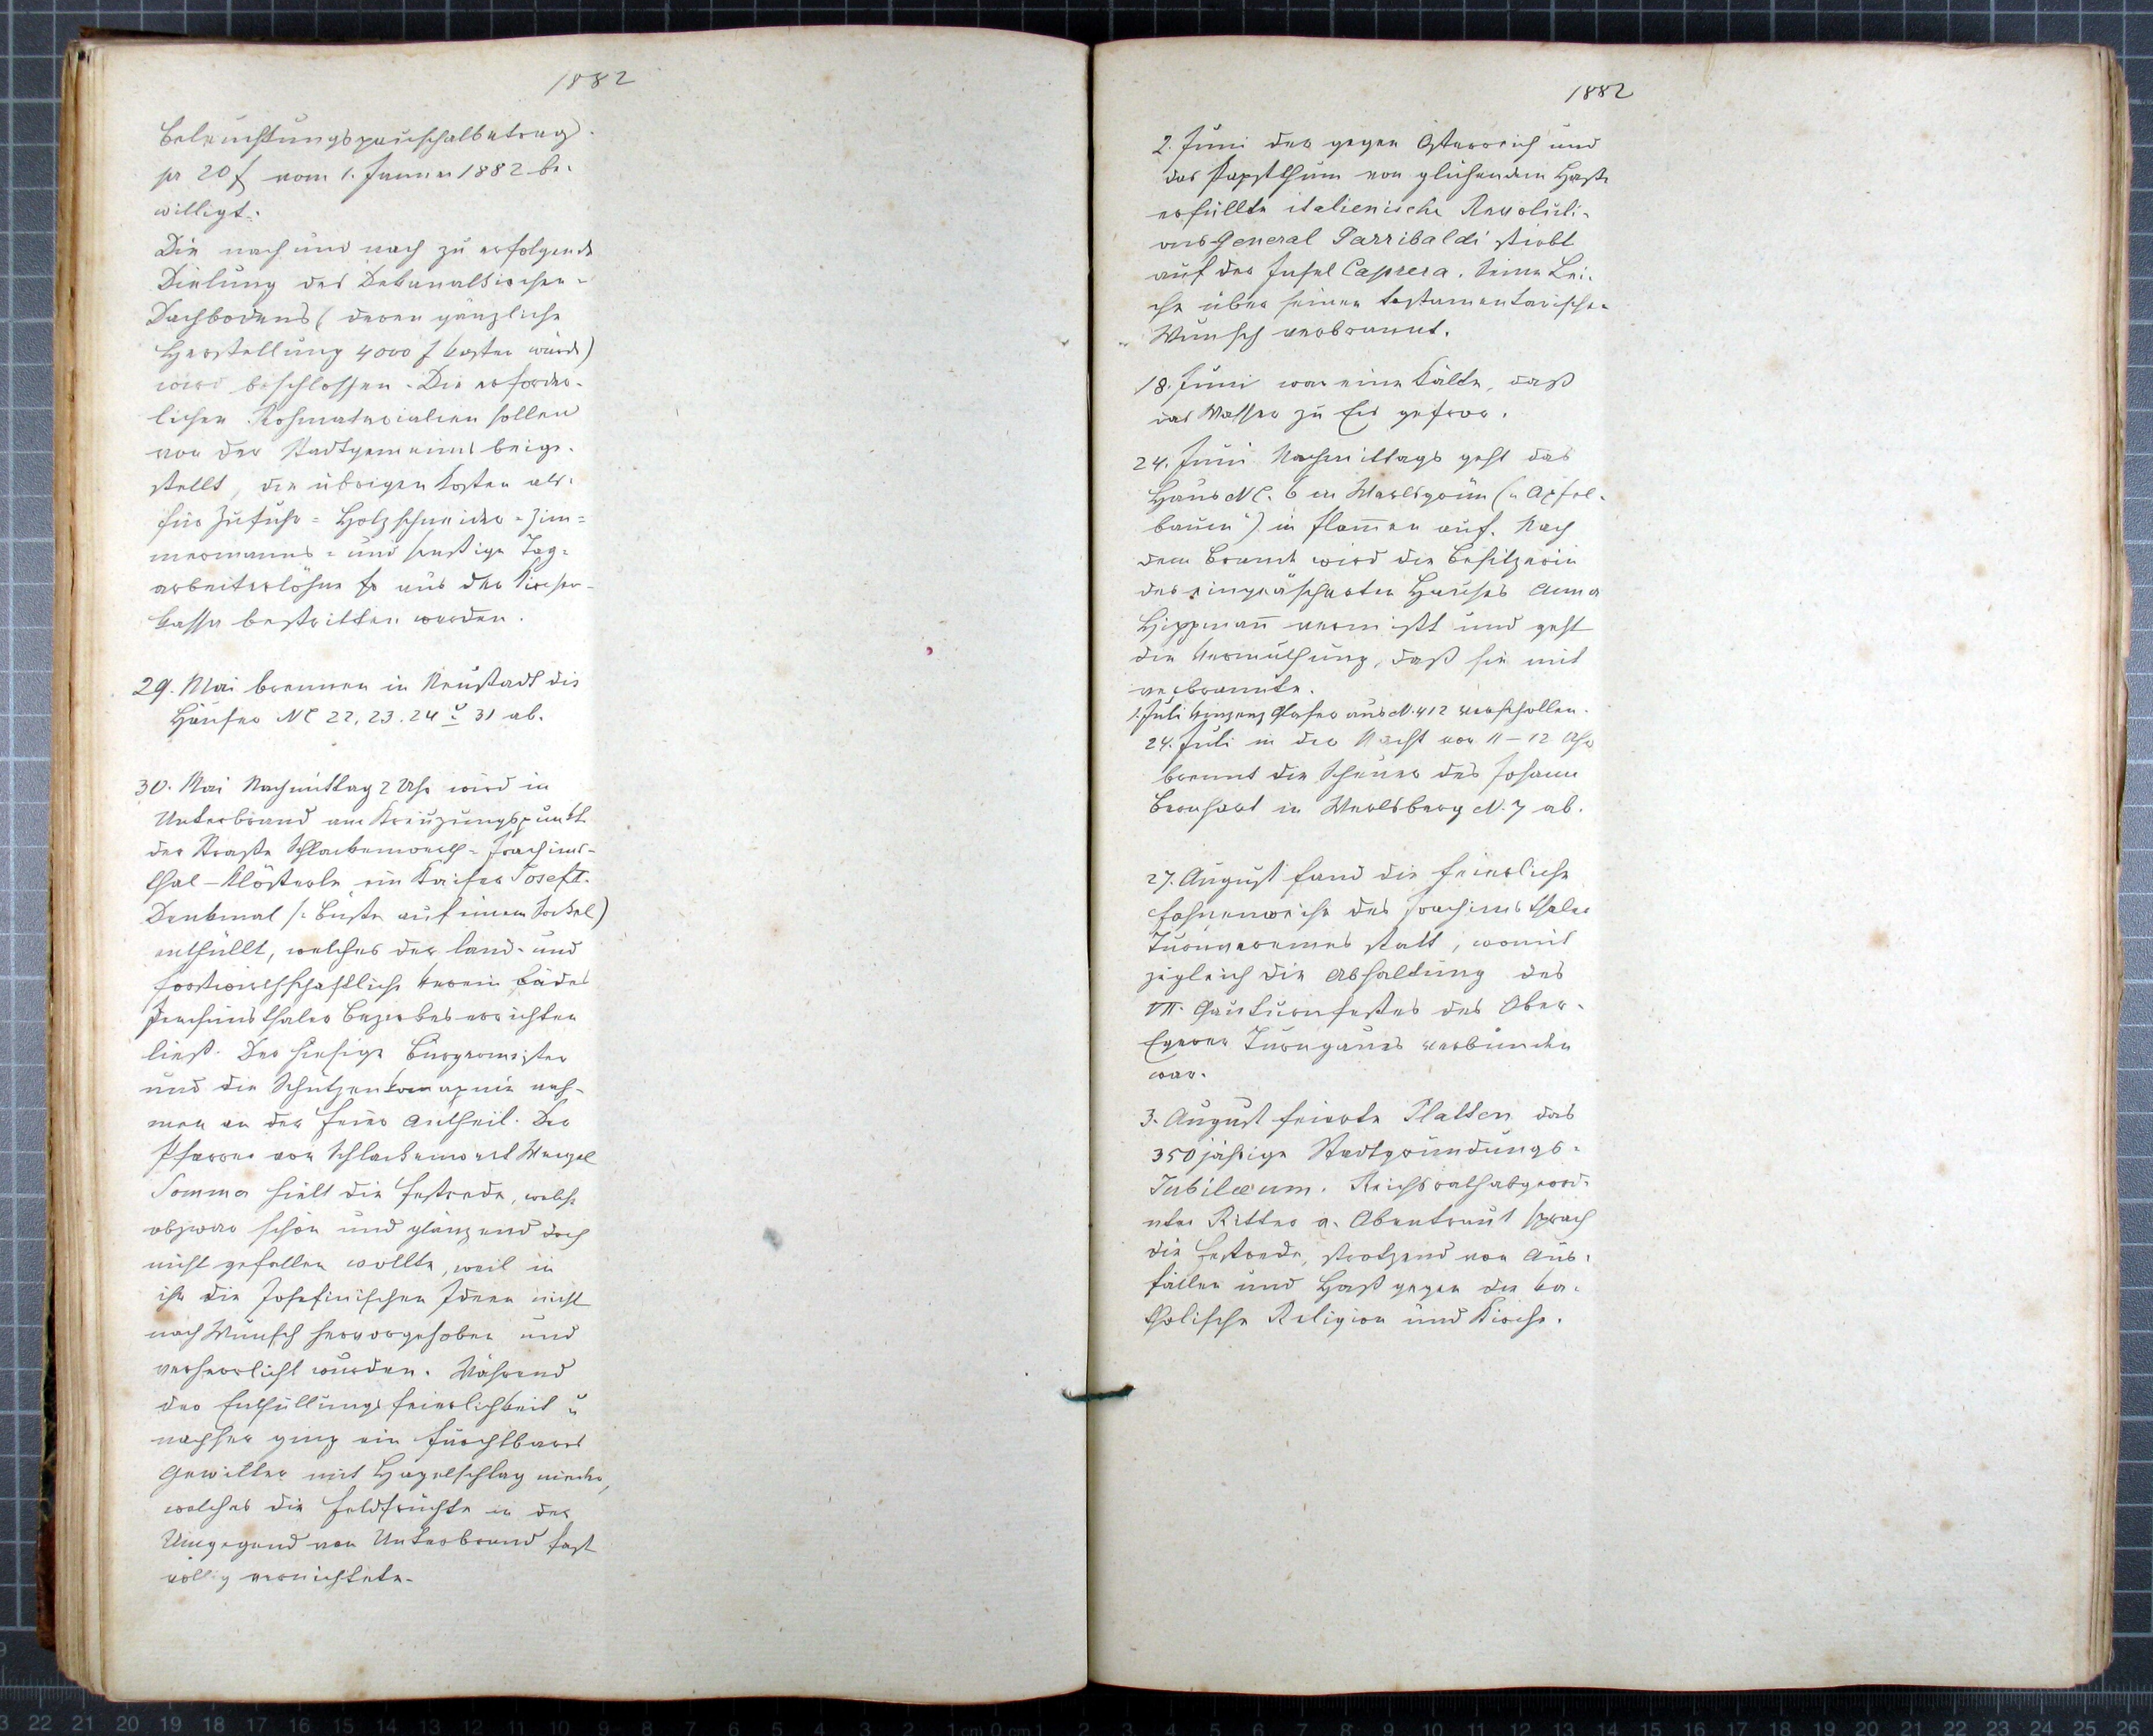 1882
Beleuchtungspauschalbetrag
pr 20 f vom 1. Jänner 1882 be-
willigt.
Die nach und nach zu erfolgende
Dielung des Dekanalkirchen-
Dachbodens (deren gänzliche
Herstellung 4000 f kosten würde)
wird beschlossen. Die erforder-
lichen Rohmaterialien sollen
von der Stadtgemeinde beige-
stellt, die übrigen Kosten als:
für Zufuhr- Holzschneider- Zim-
mermanns- und sonstige Tag-
arbeiterlöhne aus der Kirchen-
kassa bestritten werden.
29. Mai brennen in Neustadt die
Häuser NC 22, 23. 24 u 31 ab.
30. Mai Nachmittag 2 Uhr wird in
Unterbrand am Kreuzungspunkte
der Straße Schlackenwerth-Joachims-
thal-Klösterle ein Kaiser Josefs-
Denkmal (: Büste auf einem Sockel)
enthüllt, welches der land- und
forstwirthschaftliche Verein des
Joachimsthaler Bezirkes errichten
ließ. Der hiesige Bürgermeister
und die Schützenkompagnie nah-
men an der Feier Antheil. Der
Pfarrer von Schlackenwert Wenzel
Somma hielt die Festrede, welche
obzwar schön und glänzend doch
nicht gefallen wollte, weil in
ihr die Josefinischen Ideen nicht
nach Wunsch hervorgehoben und
verherrlicht wurden. Während
der Enthüllungsfeierlichkeit u
nachher ging ein furchtbares
Gewitter mit Hagelschlag nieder,
welches die Feldfrüchte in der
Umgegend von Unterbrand fast
völlig vernichtete.
1882
2. Juni der gegen Österreich und
das Papstthum von glühendem Hasse
erfüllte italienische Revoluti-
ons General Garribaldi stirbt
auf der Insel Caprera. Seine Lei-
che über seinen testamentarischen
Wunsch verbrannt.
18. Juni war eine Kälte, daß
das Wasser zu Eis gefror.
24. Juni Nachmittags geht das
Haus NC. 6 in Werlsgrün („Apfel-
baum“) in Flamen auf. Nach
dem Brande wird die Besitzerin
des eingeäscherten Hauses Anna
Hippmann vermißt und geht
die Vermuthung, daß sie mit
verbrannte.
1. Juli Vinzenz Glaser aus N. 412 verschollen.
24. Juli in der Nacht von 11-12 Uhr
brennt die Scheuer des Johann
Bernhart in Werlsberg N. 7 ab.
27. August fand die feierliche
Fahnenweihe des Joachimsthaler
Turnvereines statt, womit
zugleich die Abhaltung des
VII. Gauturnfestes des Ober-
Egerer Turngaues verbunden
war.
3. August feierte Platten das
350 jährige Stadtgründungs-
Jubilæum. Reichsrathabgeord-
neter Ritter v. Obentraut sprach
die Festrede, strotzend von Aus-
fällen und Haß gegen die ka-
tholische Religion und Kirche.